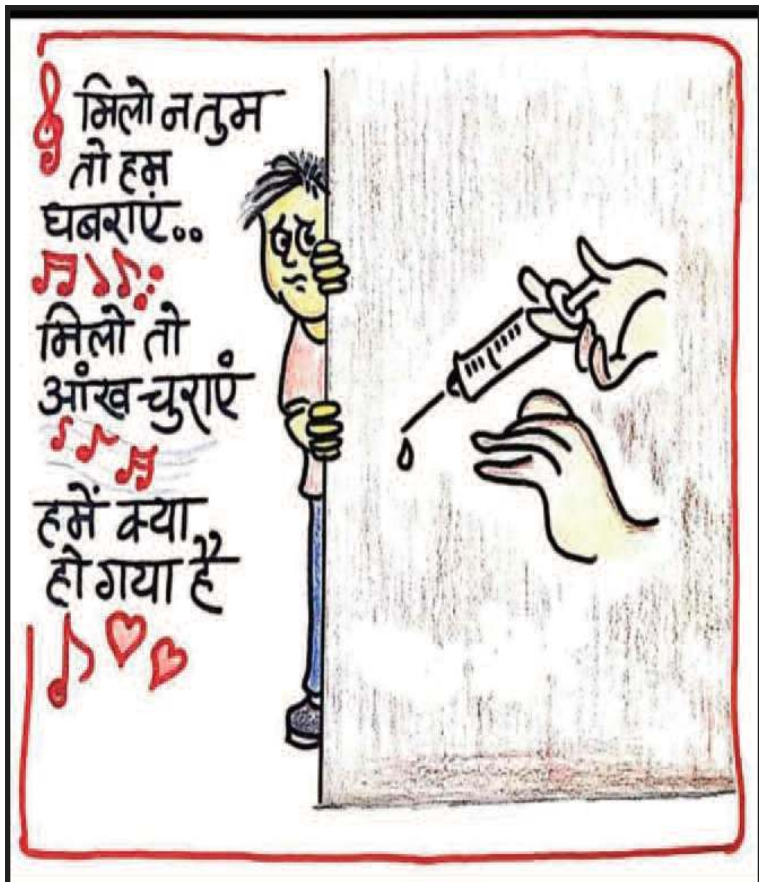 मिलो न तुम
तो हम
घबराएं..
मिलो तो
आंख चुराएं
हमें क्या
हो गया है